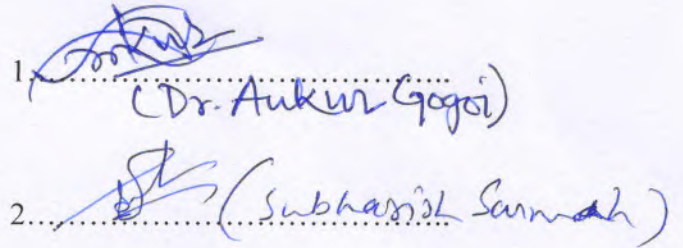 1. Ankur
(Dr. Ankur Gogoi)
2. (Subhasish Sarmah)